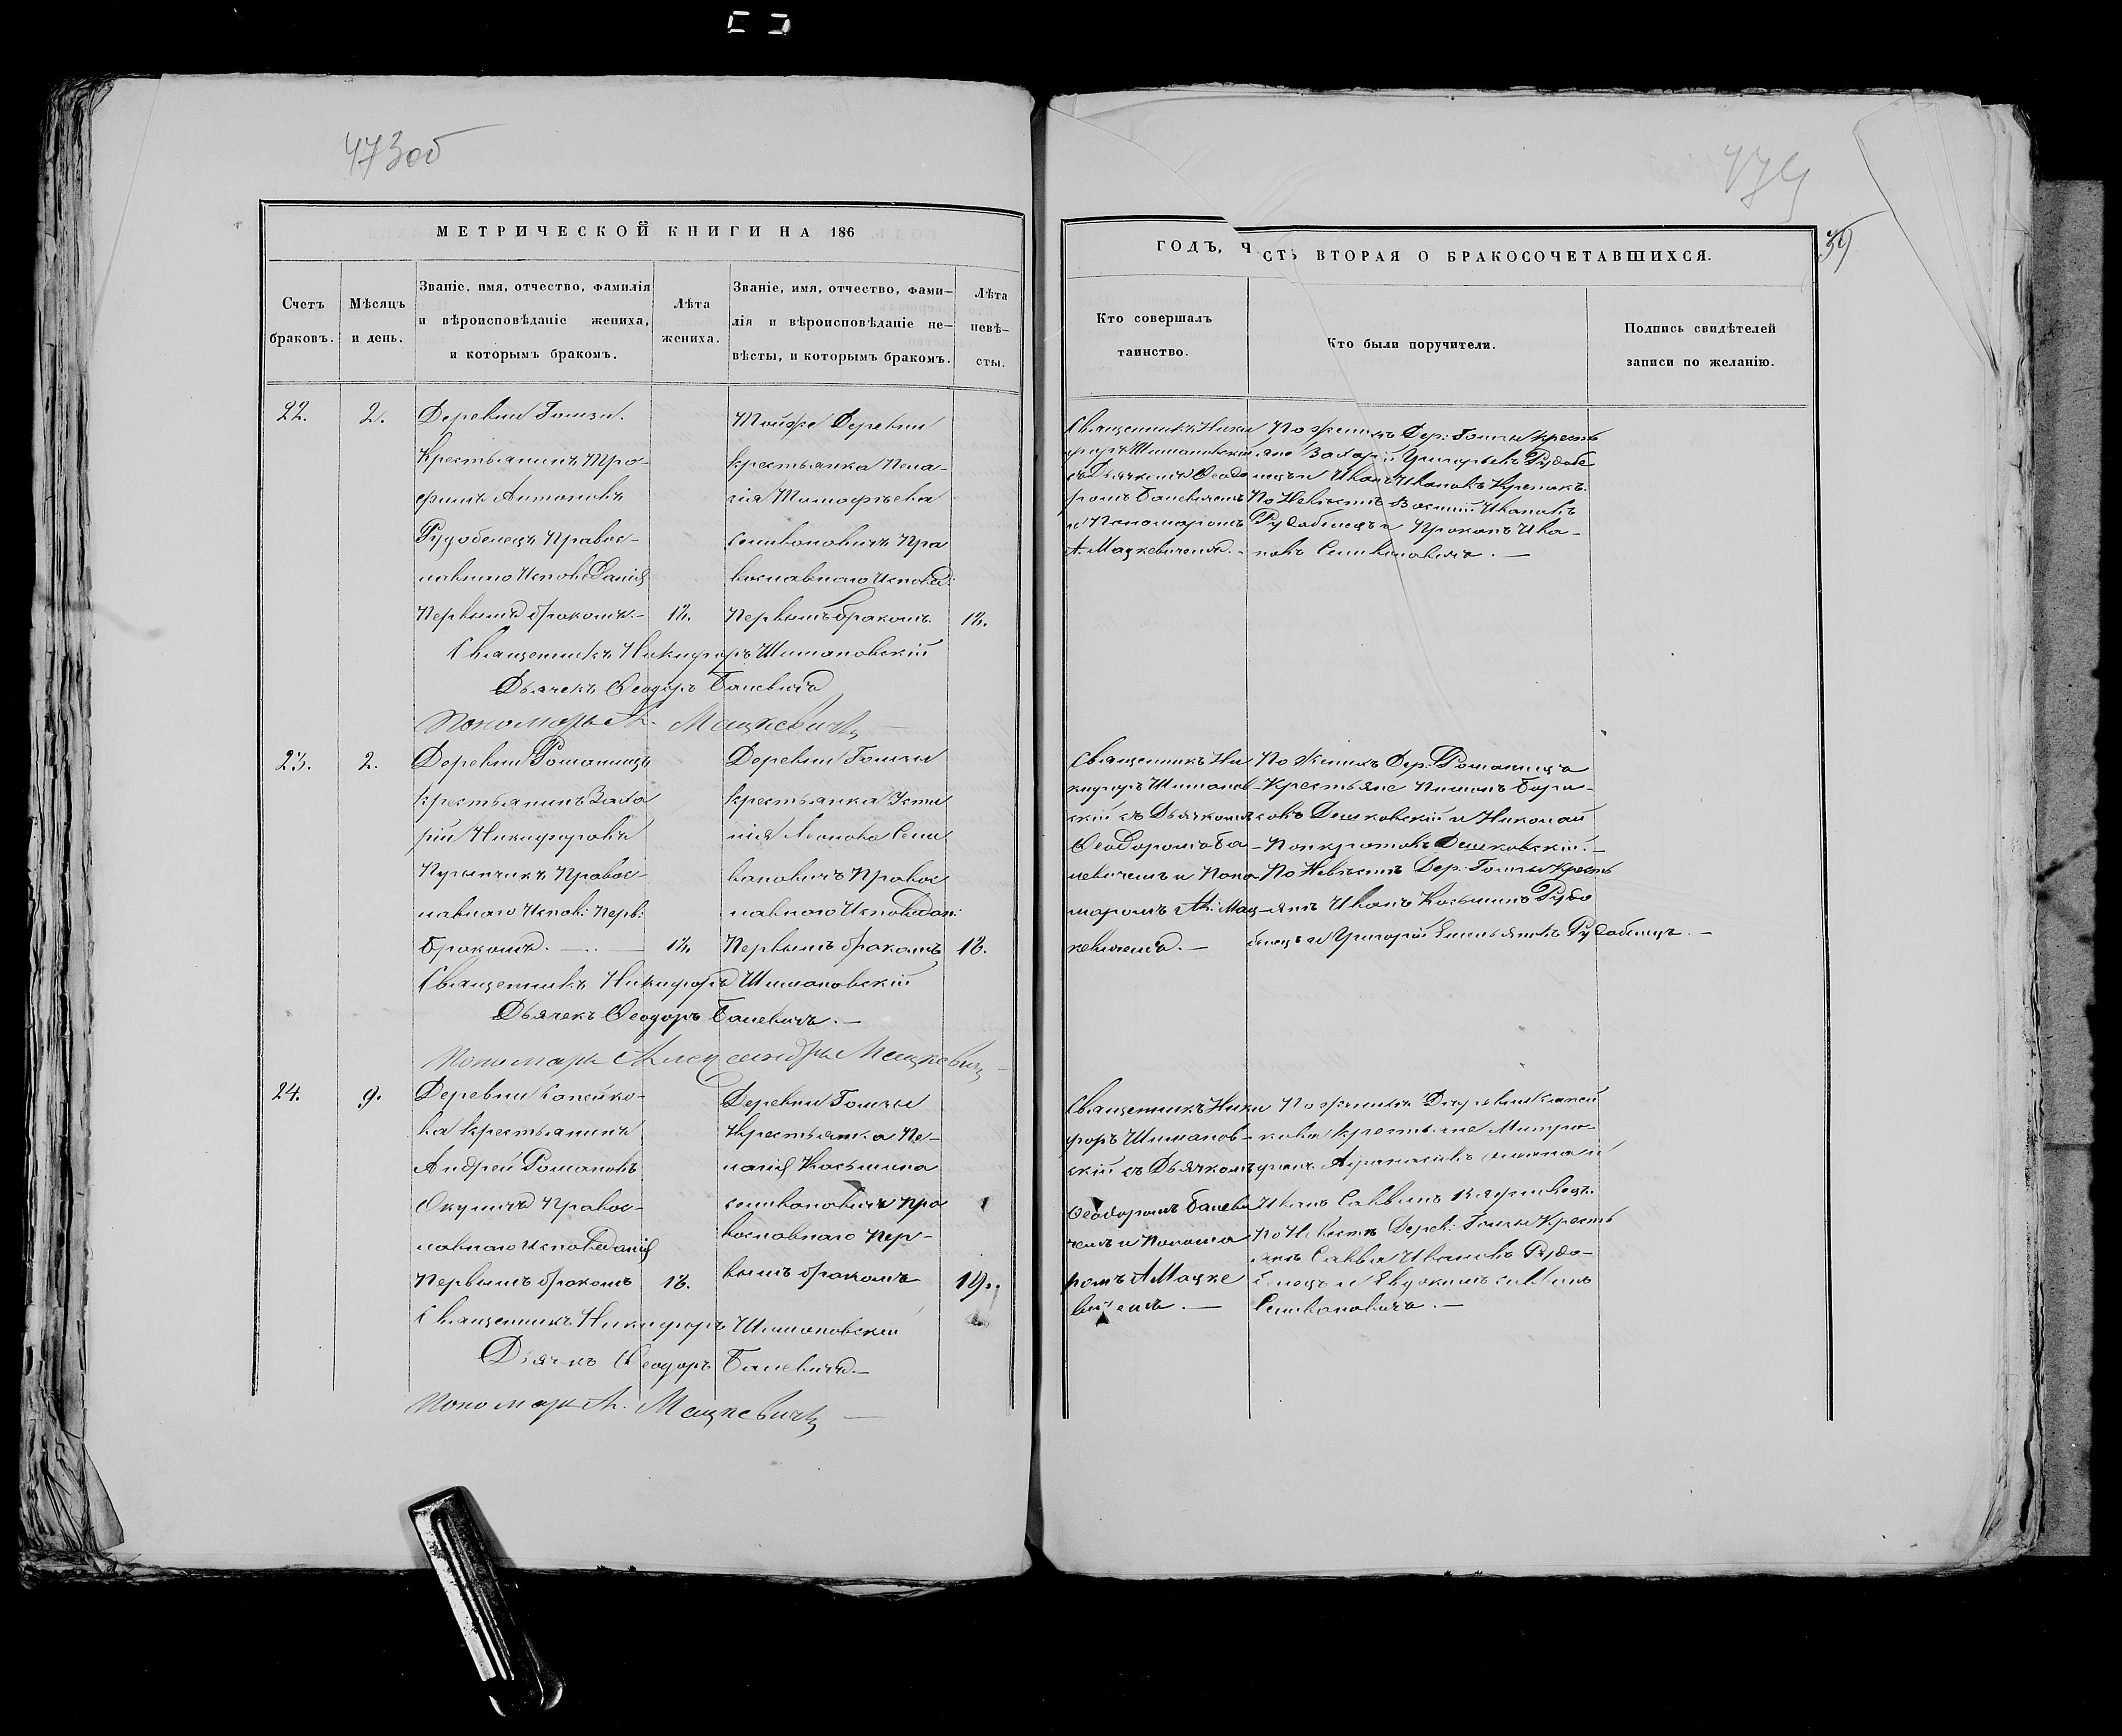 473об
МЕТРИЧЕСКОЙ КНИГИ НА 186
Счетъ браковъ.
Мѣсяцъ и день.
Званіе, имя, отчество, фамилія и вѣроисповѣданіе жениха, и которымъ бракомъ.
Лѣта жениха.
Званіе, имя, отчество, фамилія и вѣроисповѣданіе невѣсты, и которымъ бракомъ.
Лѣта невѣсты.
22.
2.
Деревни Гомзы.
Крестьянинъ Тро-
фимъ Антоновъ
Рудобелецъ Правос-
лавного Исповеданія
Первымъ бракомъ.-
18.
Тойже Деревни
крестьянка Пела-
гія Тимофѣева
Селивоновичъ Пра
вославного Исповед:
Первымъ бракомъ.
18.
Священникъ Никифоръ Шимановскій
Дьячекъ Ѳеодоръ Баневичъ
Пономарь А. Мацкевичъ
23.
2.
Деревни Романищъ
крестьянинъ Заха
рій Никифоровъ
Правос-
лавного Испов: Перв:
бракомъ.
18.
Деревни Гомзы
крестьянка Усти
нія Леонова Сели
вановичъ Правос
лавного Исповедан:
Первымъ бракомъ
18.
Священникъ Никифоръ Шимановскій
Дьячекъ Ѳеодоръ Баневичъ.-
Пономарь Александръ Мацкевичъ
24.
9.
Деревни Копейко-
ва крестьянинъ
Андрей Романовъ
Окуличъ Правос-
лавного Исповеданія
Первымъ бракомъ
18.
Деревни Гомзы
Крестьянка Пе-
лагія Косьмина
Селивоновичъ Пра
вославного Пер-
вымъ бракомъ
19.
Священникъ Никифоръ Шимановскій
Дьячекъ Ѳеодоръ Баневичъ.-
Пономарь А. Мацкевичъ
474
39
ГОДЪ, Ч СТЬ ВТОРАЯ О БРАКОСОЧЕТАВШИХСЯ.
Кто совершалъ таинство.
Кто были поручители.
Подпись свидѣтелей записи по желанію.
Священникъ Ники
форъ Шимановскій
съ Дьячкомъ Ѳеодо
ромъ Баневичемъ
и Пономаромъ
А. Мацкевичемъ.-
По женихѣ Дер: Гомзы Кресть
яне Захарій Григорьевъ Рудобе
лецъ и Иванъ Ивановъ
По Невѣстѣ Василій Ивановъ
Рудобелецъ и Прокопъ Ива-
новъ Селивановичъ.-
Священникъ Ни
кифоръ Шиманов-
скій съ Дьячкомъ
Ѳеодоромъ Ба-
невичемъ и Поно
маромъ А: Мац-
кевичемъ.-
По женихѣ Дер: Романища
Крестьяне Пименъ Бори-
совъ Дешковскій и Николай
Понкратовъ Дешковскій.-
По Невѣстѣ Дер: Гомзы Кресть
янѣ Иванъ Косьминъ Рудо
белецъ и Григорій Емельяновъ Рудобелецъ.-
Священникъ Ники
форъ Шиманов-
скій съ Дьячкомъ
Ѳеодоромъ Баневи
чемъ и Понома
ромъ А Мацке
вичемъ.-
По женихѣ Деревни Копей
кова крестьяне Митро-
фанъ и
Иванъ Саввинъ
По Невѣстѣ Дерев: Гомзы Кресть
янѣ Савва Ивановъ Рудо-
белецъ и Евдокимъ
Селивановичъ.-